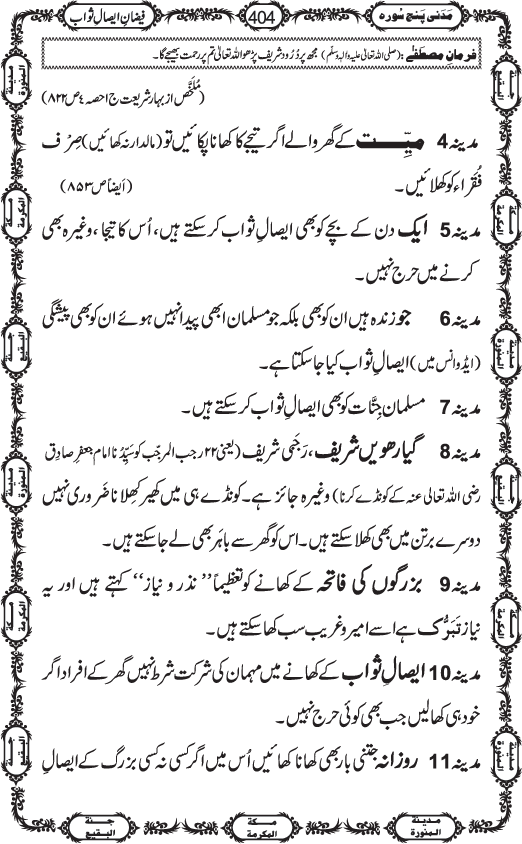 مَدَنی پنج سورہ
404
فیضانِ ایصالِ ثواب
فرمانِ مصطفےٰ : (صلی اللہ تعالیٰ علیہ والہ وسلّم) مجھ پر دُرُود شریف پڑھو اللہ تعالیٰ تم پر رحمت بھیجے گا۔
(مُلَخَّص از بہارِ شریعت ج۱ حصہ ۴ ص ۸۲۲)
مدینہ 4 میّت کے گھر والے اگر تیجے کا کھانا پکائیں تو (مالدار نہ کھائیں) صِرف
فُقَراء کو کھلائیں۔ (اَیضاً ص ۸۵۳)
مدینہ 5 ایک دن کے بچے کو بھی ایصالِ ثواب کرسکتے ہیں، اُس کا تیجا، وغیرہ بھی
کرنے میں حَرَج نہیں۔
مدینہ 6 جو زندہ ہیں ان کو بھی بلکہ جو مسلمان ابھی پیدا نہیں ہوئے ان کو بھی پیشگی
(ایڈوانس میں) ایصالِ ثواب کیا جاسکتا ہے۔
مدینہ 7 مسلمان جِنّات کو بھی ایصالِ ثواب کرسکتے ہیں۔
مدینہ 8 گیارھویں شریف، رَجَبی شریف (یعنی ۲۲ رجب المرجّب کو سیّدُنا امام جعفرِ صادِق
رضی اللہ تعالیٰ عنہ کے کونڈے کرنا) وغیرہ جائز ہے۔ کونڈے ہی میں کھیر کھلانا ضَروری نہیں
دوسرے برتن میں بھی کھلا سکتے ہیں۔ اس کو گھر سے باہَر بھی لے جاسکتے ہیں۔
مدینہ 9 بزرگوں کی فاتحہ کے کھانے کو تعظیماً ’’نذر و نیاز‘‘ کہتے ہیں اور یہ
نیاز تَبَرُّک ہے اسے امیر و غریب سب کھاسکتے ہیں۔
مدینہ 10 ایصالِ ثواب کے کھانے میں مہمان کی شرکت شرط نہیں گھر کے افراد اگر
خود ہی کھالیں جب بھی کوئی حَرَج نہیں۔
مدینہ 11 روزانہ جتنی بار بھی کھانا کھائیں اُس میں اگر کسی نہ کسی بزرگ کے ایصالِ
مدینۃ المنورۃ
جنۃ البقیع
مکۃ المکرمۃ
مکۃ المکرمۃ
جنۃ البقیع
مدینۃ المنورۃ
مدینۃ المنورۃ
جنۃ البقیع
مکۃ المکرمۃ
مکۃ المکرمۃ
جنۃ البقیع
مدینۃ المنورۃ
مدینۃ المنورۃ
مکۃ المکرمۃ
جنۃ البقیع